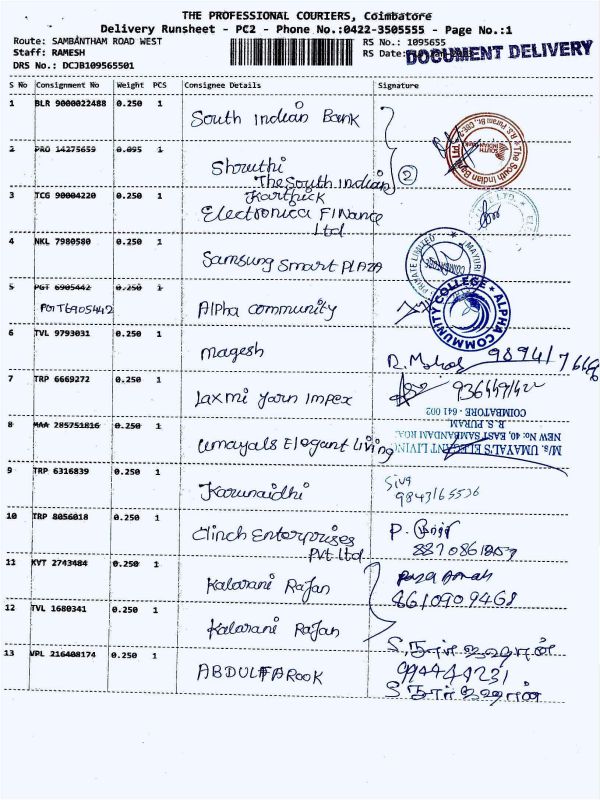 THE PROFESSIONAL COURIERS, Coimbatore
Delivery Runsheet - PC2 - Phone No.:0422-3505555 - Page No.:1
Route: SAMBANTHAM ROAD WEST
RS No.: 1095655
Staff: RAMESH
RS Date:
DOCUMENT DELIVERY
DRS No.: DCJB109565501
S No Consignment No Weight PCS Consignee Details Signature
1 BLR 9000022488 0.250 1 South Indian Bank
2 PRO 14275659 0.095 1 Shruthi
The South Indian
2
3 TCG 90004220 0.250 1 Karthick
Electronica Finance
Ltd
4 NKL 7980580 0.250 1 Samsung Smart PLAZA
5 PGT 6905442 0.250 1 Alpha community
PGT6905442
ALPHA COMMUNITY COLLEGE
6 TVL 9793031 0.250 1 magesh
7 TRP 6669272 0.250 1 Laxmi yarn Impex
COIMBATORE - 641 002
R.S. PURAM
NEW No: 40, EAST SAMBANDAM ROAD
M/s. UMAYAL'S ELEGANT LIVING
8 MAA 285751816 0.250 1 Umayals Elegant Living
9 TRP 6316839 0.250 1 Karunaidhi
Siva
9843165536
10 TRP 8056018 0.250 1 Clinch Enterprises
Pvt Ltd
P.
11 KVT 2743484 0.250 1 Kalarani Rajan
8610909468
12 TVL 1680341 0.250 1 Kalarani Rajan
13 VPL 216408174 0.250 1 ABDULFAROOK